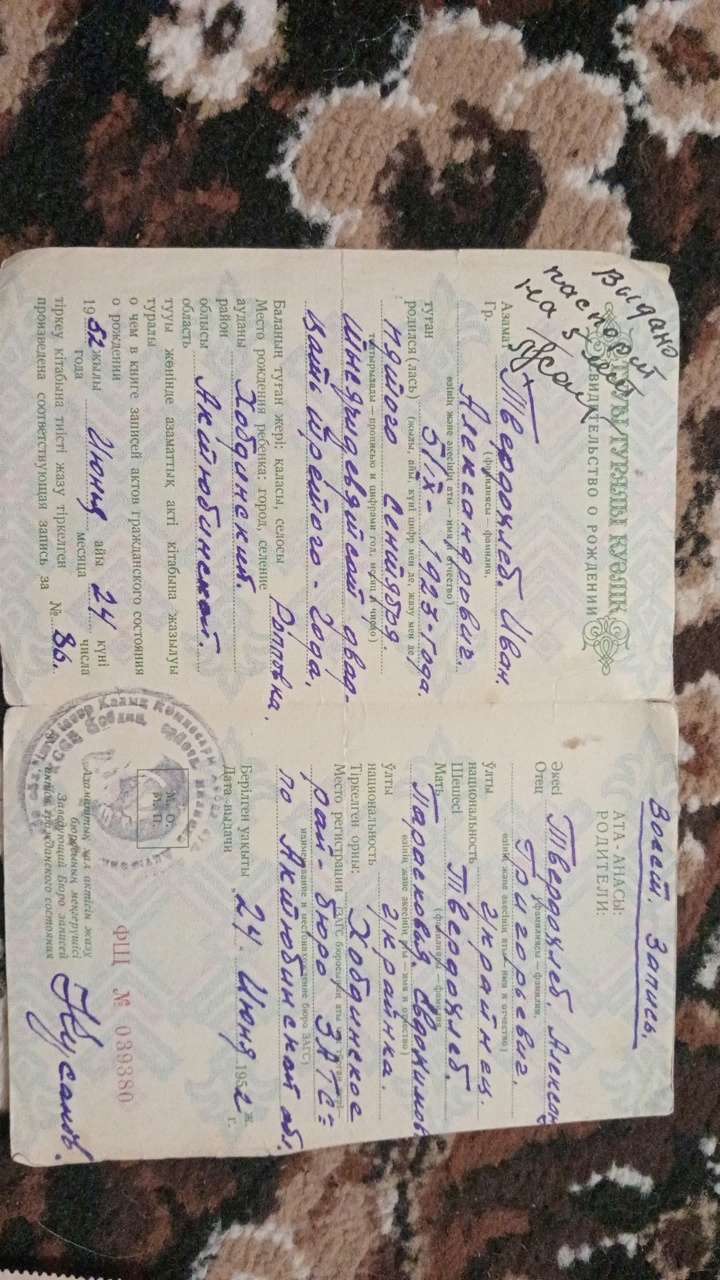 Выдано
паспорт
на 5 лет
ТУУЫ ТУРАЛЫ КУӘЛІК
СВИДЕТЕЛЬСТВО О РОЖДЕНИИ
Азамат
Гр. Твердохлеб. Иван
(фамилиясы — фамилия,
Александрович.
өзінің және әкесінің аты — имя и отчество)
туған
родился (лась) 5/IX - 1923 - года.
(жылы, айы, күні цифр мен де, жазу мен де
пятого сентября.
толтырылады — прописью и цифрами год, месяц и число)
тысячидевятсот двад-
цать третого - года.
Баланың туған жері: қаласы, селосы
Место рождения ребенка: город, селение Роптовка,
ауданы
район Хобдинский.
облысы
область Актюбинской.
тууы жөнінде азаматтық акті кітабына жазылуы
туралы
о чем в книге записей актов гражданского состояния
о рождении
1952 жылы Июня айы 24 күні
года месяца числа
тіркеу кітабына тиісті жазу тіркелген
произведена соответствующая запись за № 36.
Восст. Запись.
АТА-АНАСЫ:
РОДИТЕЛИ:
Әкесі
Отец Твердохлеб. Алексан
(фамилиясы — фамилия,
Григорьевич.
өзінің және әкесінің аты — имя и отчество)
ұлты
национальность украинец.
Шешесі
Мать Твердохлеб.
(фамилиясы — фамилия,
Парасковия Евдокимов
өзінің және әкесінің аты — имя и отчество)
ұлты
национальность украинка.
Тіркелген орны:
Место регистрации Хобдинское
рай - бюро ЗАГС=
наименование и местонахождение бюро ЗАГС)
по Актюбинской об.
Берілген уақыты
Дата выдачи „24. Июня 1952 ж.
г.
М. О.
М. П.
Азаматтық хал актісін жазу
бюросының меңгерушісі
Заведующий Бюро записей
актов гражданского состояния
ФЩ № 039380